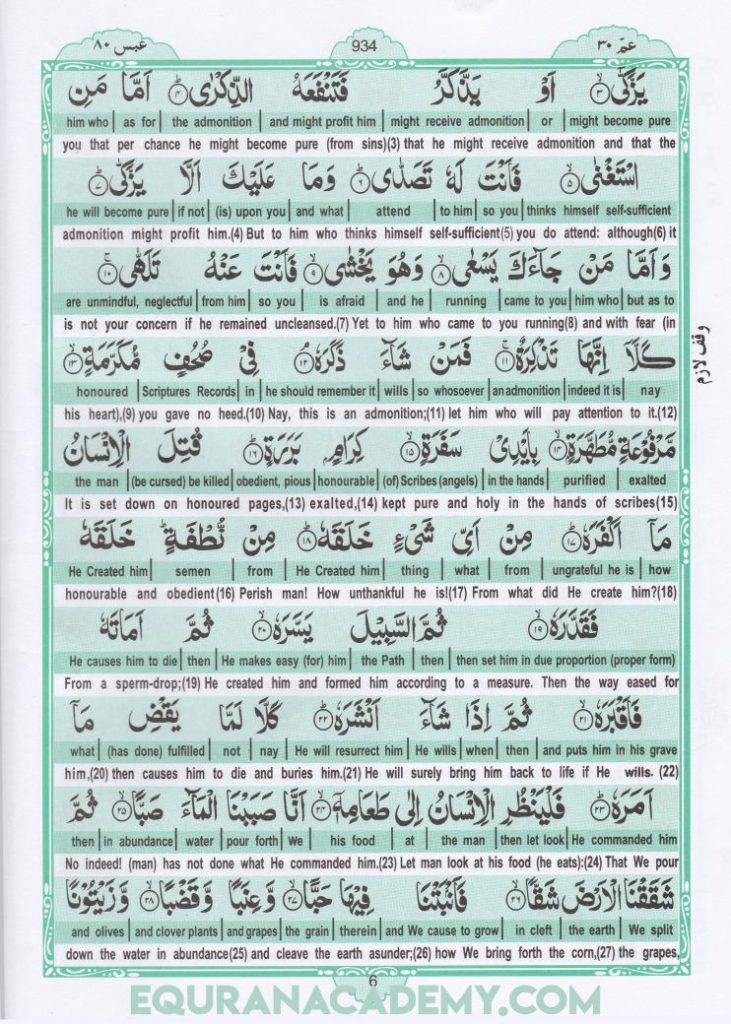 عبس ٨٠
934
عمّ ٣٠
يَزَّكّٰىۙ ﴿٣﴾ اَوْ يَذَّكَّرُ فَتَنْفَعَهُ الذِّكْرٰىؕ ﴿٤﴾ اَمَّا مَنِ
him who | as for | the admonition | and might profit him | might receive admonition | or | might become pure
you that per chance he might become pure (from sins)(3) that he might receive admonition and that the
اسْتَغْنٰىۙ ﴿٥﴾ فَاَنْتَ لَهٗ تَصَدّٰىؕ ﴿٦﴾ وَمَا عَلَيْكَ اَلَّا يَزَّكّٰىؕ ﴿٧﴾
he will become pure | if not | (is) upon you | and what | attend | to him | so you | thinks himself self-sufficient
admonition might profit him.(4) But to him who thinks himself self-sufficient(5) you do attend: although(6) it
وَاَمَّا مَنْ جَآءَكَ يَسْعٰىۙ ﴿٨﴾ وَهُوَ يَخْشٰىۙ ﴿٩﴾ فَاَنْتَ عَنْهُ تَلَهّٰىۚ ﴿١٠﴾
are unmindful, neglectful | from him | so you | is afraid | and he | running | came to you | him who | but as to
is not your concern if he remained uncleansed.(7) Yet to him who came to you running(8) and with fear (in
كَلَّاۤ اِنَّهَا تَذْكِرَةٌۚ ﴿١١﴾ فَمَنْ شَآءَ ذَكَرَهٗۘ ﴿١٢﴾ فِيْ صُحُفٍ مُّكَرَّمَةٍۙ ﴿١٣﴾
وقف لازم
honoured | Scriptures Records | in | he should remember it | wills | so whosoever | an admonition | indeed it is | nay
his heart),(9) you gave no heed.(10) Nay, this is an admonition;(11) let him who will pay attention to it.(12)
مَّرْفُوْعَةٍ مُّطَهَّرَةٍۭۙ ﴿١٤﴾ بِاَيْدِيْ سَفَرَةٍۙ ﴿١٥﴾ كِرَامٍۭ بَرَرَةٍؕ ﴿١٦﴾ قُتِلَ الْاِنْسَانُ
the man | (be cursed) be killed | obedient, pious | honourable | (of) Scribes (angels) | in the hands | purified | exalted
It is set down on honoured pages,(13) exalted,(14) kept pure and holy in the hands of scribes(15)
مَاۤ اَكْفَرَهٗؕ ﴿١٧﴾ مِنْ اَيِّ شَيْءٍ خَلَقَهٗؕ ﴿١٨﴾ مِنْ نُّطْفَةٍؕ خَلَقَهٗ
He Created him | semen | from | He Created him | thing | what | from | ungrateful he is | how
honourable and obedient(16) Perish man! How unthankful he is!(17) From what did He create him?(18)
فَقَدَّرَهٗۙ ﴿١٩﴾ ثُمَّ السَّبِيْلَ يَسَّرَهٗۙ ﴿٢٠﴾ ثُمَّ اَمَاتَهٗ
He causes him to die | then | He makes easy (for) him | the Path | then | then set him in due proportion (proper form)
From a sperm-drop;(19) He created him and formed him according to a measure. Then the way eased for
فَاَقْبَرَهٗۙ ﴿٢١﴾ ثُمَّ اِذَا شَآءَ اَنْشَرَهٗؕ ﴿٢٢﴾ كَلَّا لَمَّا يَقْضِ مَاۤ
what | (has done) fulfilled | not | nay | He will resurrect him | He wills | when | then | and puts him in his grave
him,(20) then causes him to die and buries him.(21) He will surely bring him back to life if He wills. (22)
اَمَرَهٗؕ ﴿٢٣﴾ فَلْيَنْظُرِ الْاِنْسَانُ اِلٰى طَعَامِهٖۤۙ ﴿٢٤﴾ اَنَّا صَبَبْنَا الْمَآءَ صَبًّاۙ ﴿٢٥﴾ ثُمَّ
then | in abundance | water | pour forth | We | his food | at | the man | then let look | He commanded him
No indeed! (man) has not done what He commanded him.(23) Let man look at his food (he eats):(24) That We pour
شَقَقْنَا الْاَرْضَ شَقًّاۙ ﴿٢٦﴾ فَاَنْۢبَتْنَا فِيْهَا حَبًّاۙ ﴿٢٧﴾ وَّعِنَبًا وَّقَضْبًاۙ ﴿٢٨﴾ وَّزَيْتُوْنًا
and olives | and clover plants | and grapes | the grain | therein | and We cause to grow | in cleft | the earth | We split
down the water in abundance(25) and cleave the earth asunder;(26) how We bring forth the corn,(27) the grapes,
6
EQURANACADEMY.COM